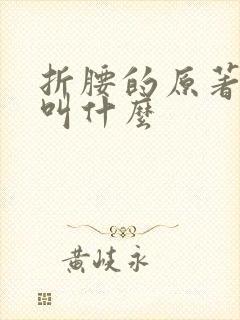 折腰的原著
叫什麽
黄岐永